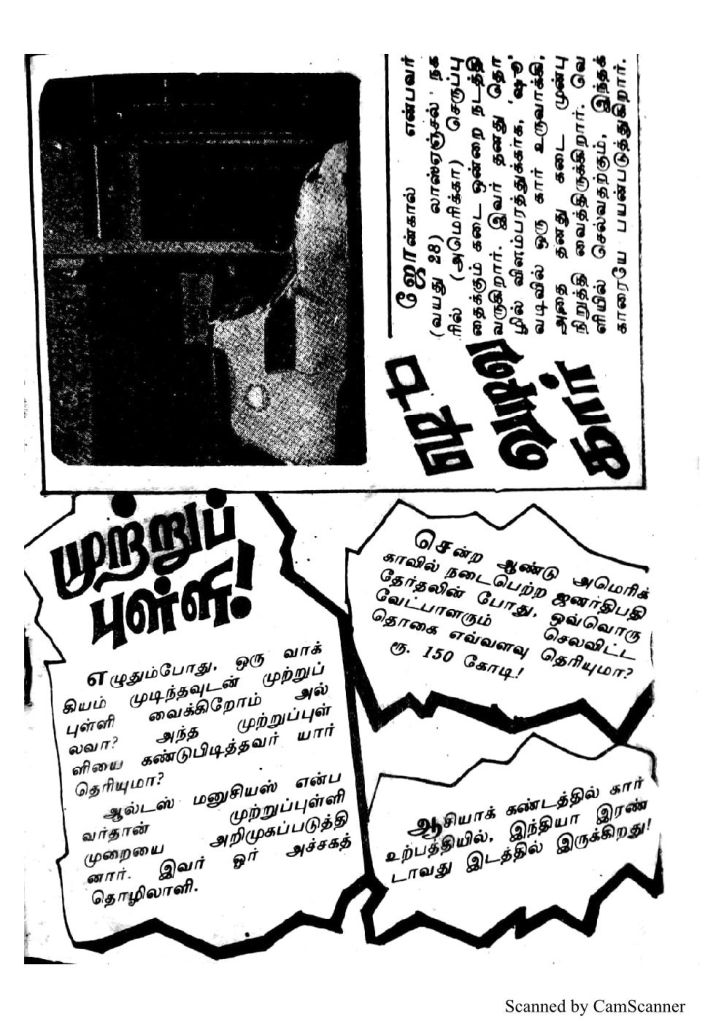 ஜோன்கால் என்பவர்
(வயது 28) லாஸ்ஏஞ்சல்' நக
ரில் (அமெரிக்கா) செருப்பு
தைக்கும் கடை ஒன்றை நடத்தி
வருகிறார். இவர் தனது தொ
ழில் விளம்பரத்துக்காக, 'ஷூ'
வடிவில் ஒரு கார் உருவாக்கி,
அதை தனது கடை முன்பு
நிறுத்தி வைத்திருக்கிறார். வெ
ளியில் செல்வதற்கும், இந்தக்
காரையே பயன்படுத்துகிறார்.
கார்
முற்றுப்
புள்ளி!
எழுதும்போது, ஒரு வாக்
கியம் முடிந்தவுடன் முற்றுப்
புள்ளி வைக்கிறோம் அல்
லவா? அந்த முற்றுப்புள்
ளியை கண்டுபிடித்தவர் யார்
தெரியுமா?
ஆல்டஸ் மனுசியஸ் என்ப
வர்தான் முற்றுப்புள்ளி
முறையை அறிமுகப்படுத்தி
னார். இவர் ஓர் அச்சகத்
தொழிலாளி.
சென்ற ஆண்டு அமெரிக்
காவில் நடைபெற்ற ஜனாதிபதி
தேர்தலின் போது, ஒவ்வொரு
வேட்பாளரும் செலவிட்ட
தொகை எவ்வளவு தெரியுமா?
ரூ. 150 கோடி!
ஆசியாக் கண்டத்தில் கார்
உற்பத்தியில், இந்தியா இரண்
டாவது இடத்தில் இருக்கிறது!
Scanned by CamScanner